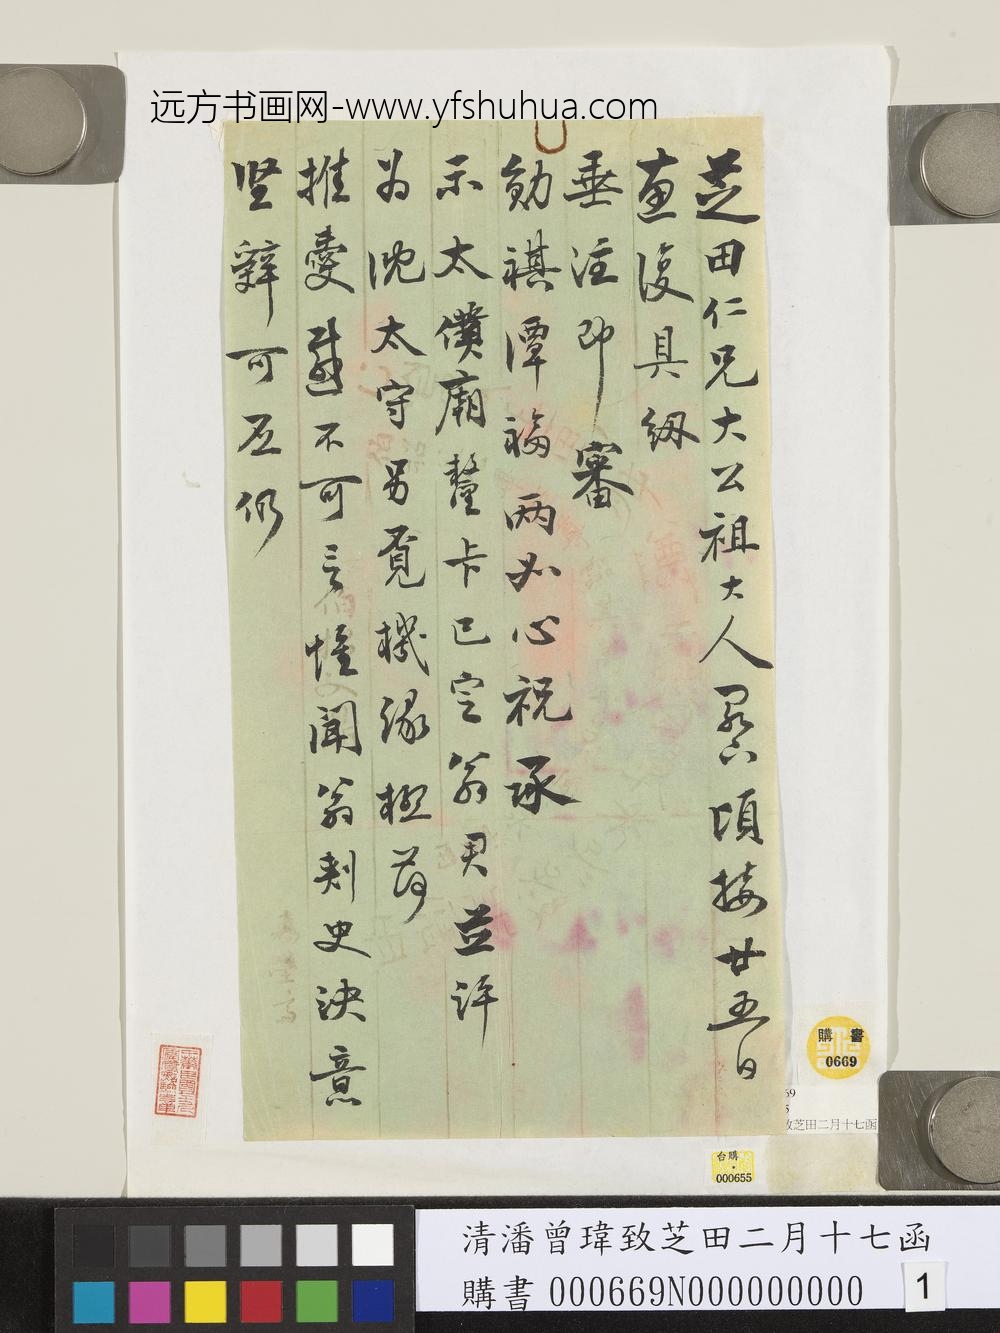 远方书画网-www.yfshuhua.com
芝田仁兄大公祖大人阁下頃接廿五日
惠復具紉
垂注即審
勛祺潭福兩如心祝承
示太僕廟釐卡已定翁君並許
为沈太守另覓機緣極荷
推愛感不可言惟聞翁刺史決意
坚辞可否仍
購書
0669
致芝田二月十七函
台購
000655
清潘曾瑋致芝田二月十七函
購書000669N000000000
1